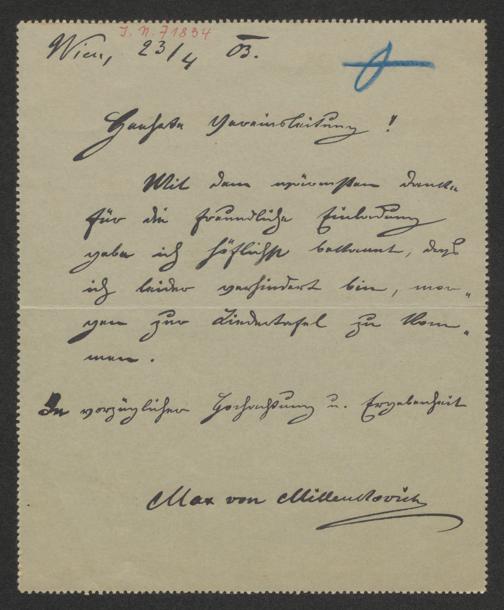 J. N. 71834
Wien, 23/4 03.
Geehrte Vereinsleitung!
Mit dem wärmsten Danke
für die freundliche Einladung
gebe ich höflichst bekannt, daß
ich leider verhindert bin, mor-
gen zur Liedertafel zu kom-
men.
In vorzüglicher Hochachtung u. Ergebenheit
Max von Millenkovich